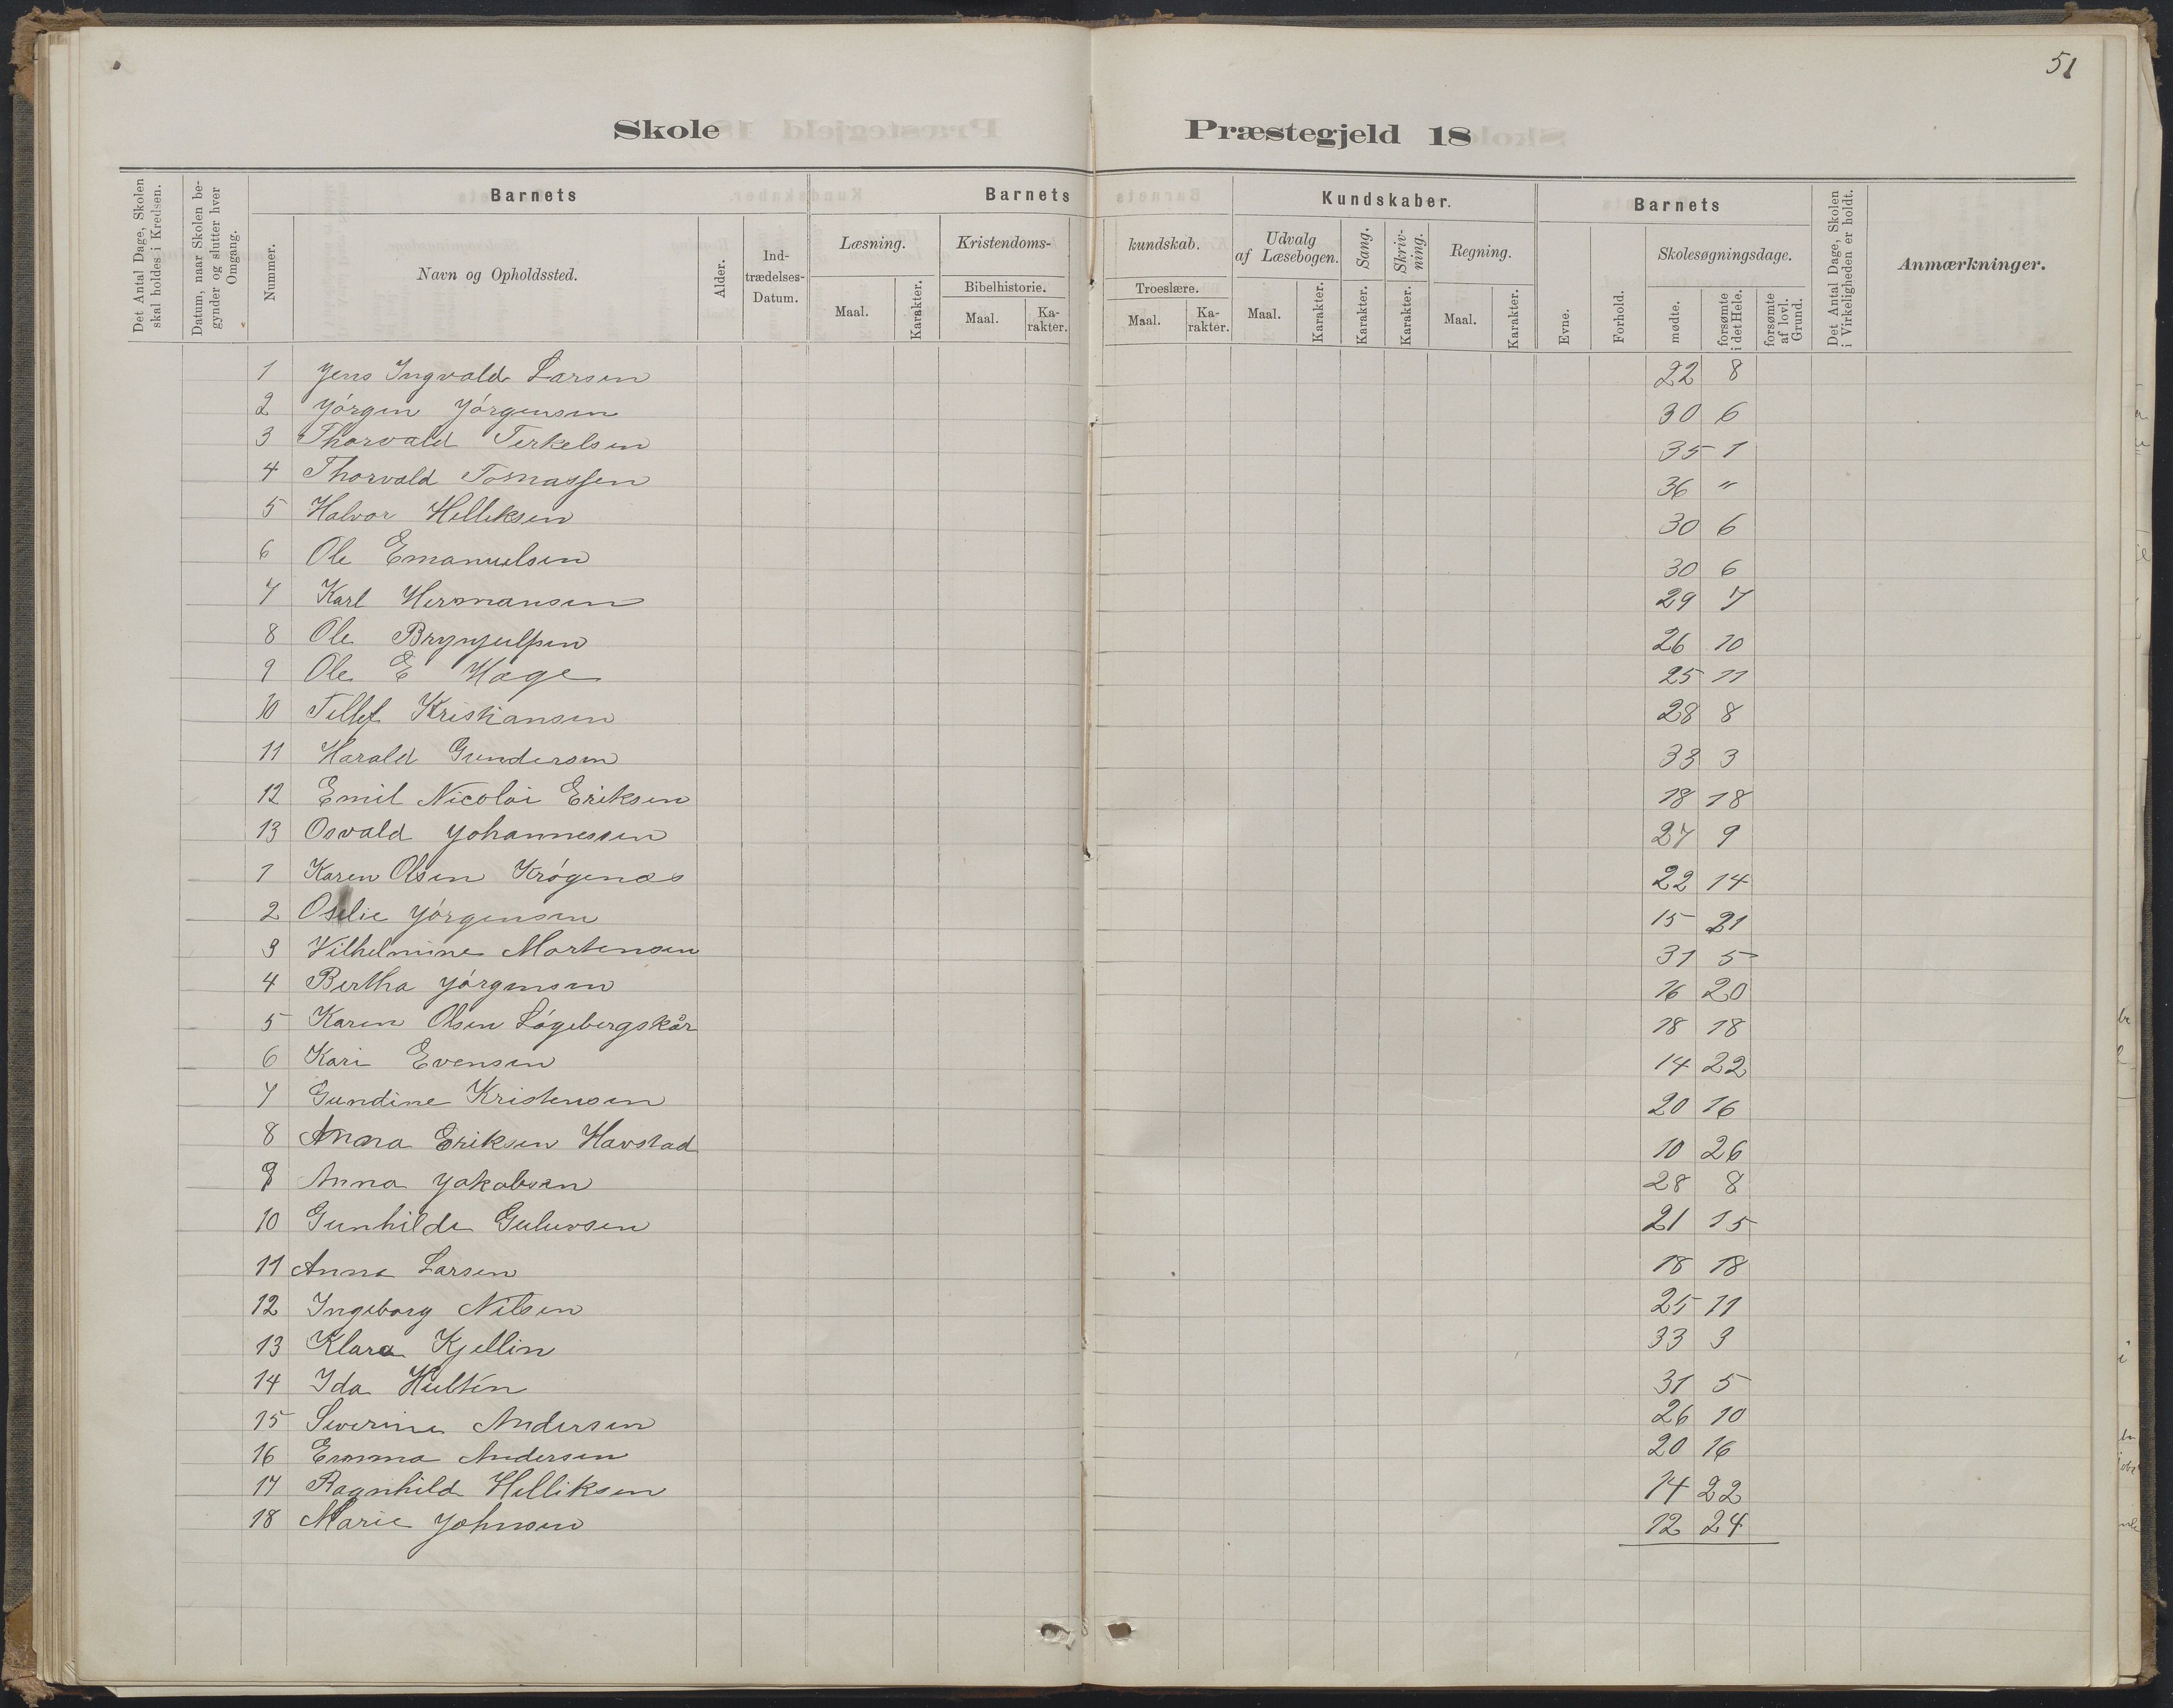 51
Skole Præstegjeld 18
Det Antal Dage, Skolen skal holdes i Kredsen.
Datum, naar Skolen begynder og slutter hver Omgang.
Barnets
Nummer.
Navn og Opholdssted.
Alder.
Indtrædelses-Datum.
Barnets Kundskaber.
Læsning.
Maal. Karakter.
Kristendomskundskab.
Bibelhistorie.
Maal. Karakter.
Troeslære.
Maal. Karakter.
Udvalg af Læsebogen.
Maal. Karakter.
Sang.
Karakter.
Skrivning.
Karakter.
Regning.
Maal. Karakter.
Barnets
Evne.
Forhold.
Skolesøgningsdage.
mødte.
forsømte i det Hele.
forsømte af lovl. Grund.
Det Antal Dage, Skolen i Virkeligheden er holdt.
Anmærkninger.
1 Jens Ingvald Larsen 22 8
2 Jörgen Jörgensen 30 6
3 Thorvald Terkelsen 35 1
4 Thorvald Tomassen 36 "
5 Halvor Helleksen 30 6
6 Ole Emanuelsen 30 6
7 Karl Hermansen 29 7
8 Ole Brynjulfsen 26 10
9 Ole E Hage 25 11
10 Tellef Kristiansen 28 8
11 Harald Gundersen 33 3
12 Emil Nicolai Eriksen 18 18
13 Osvald Johannessen 27 9
1 Karen Olsen Krögenæs 22 14
2 Oselie Jörgensen 15 21
3 Vilhelmine Mortensen 31 5
4 Bertha Jörgensen 16 20
5 Karen Olsen Lögebergskår 18 18
6 Kari Evensen 14 22
7 Gundine Kristensen 20 16
8 Anna Eriksen Havstad 10 26
9 Anna Jakobsen 28 8
10 Gunhilde Guluvsen 21 15
11 Anna Larsen 18 18
12 Ingeborg Nilsen 25 11
13 Klara Kjellin 33 3
14 Ida Hultén 31 5
15 Severine Andersen 26 10
16 Emma Andersen 20 16
17 Ragnhild Helliksen 14 22
18 Marie Johnsen 12 24